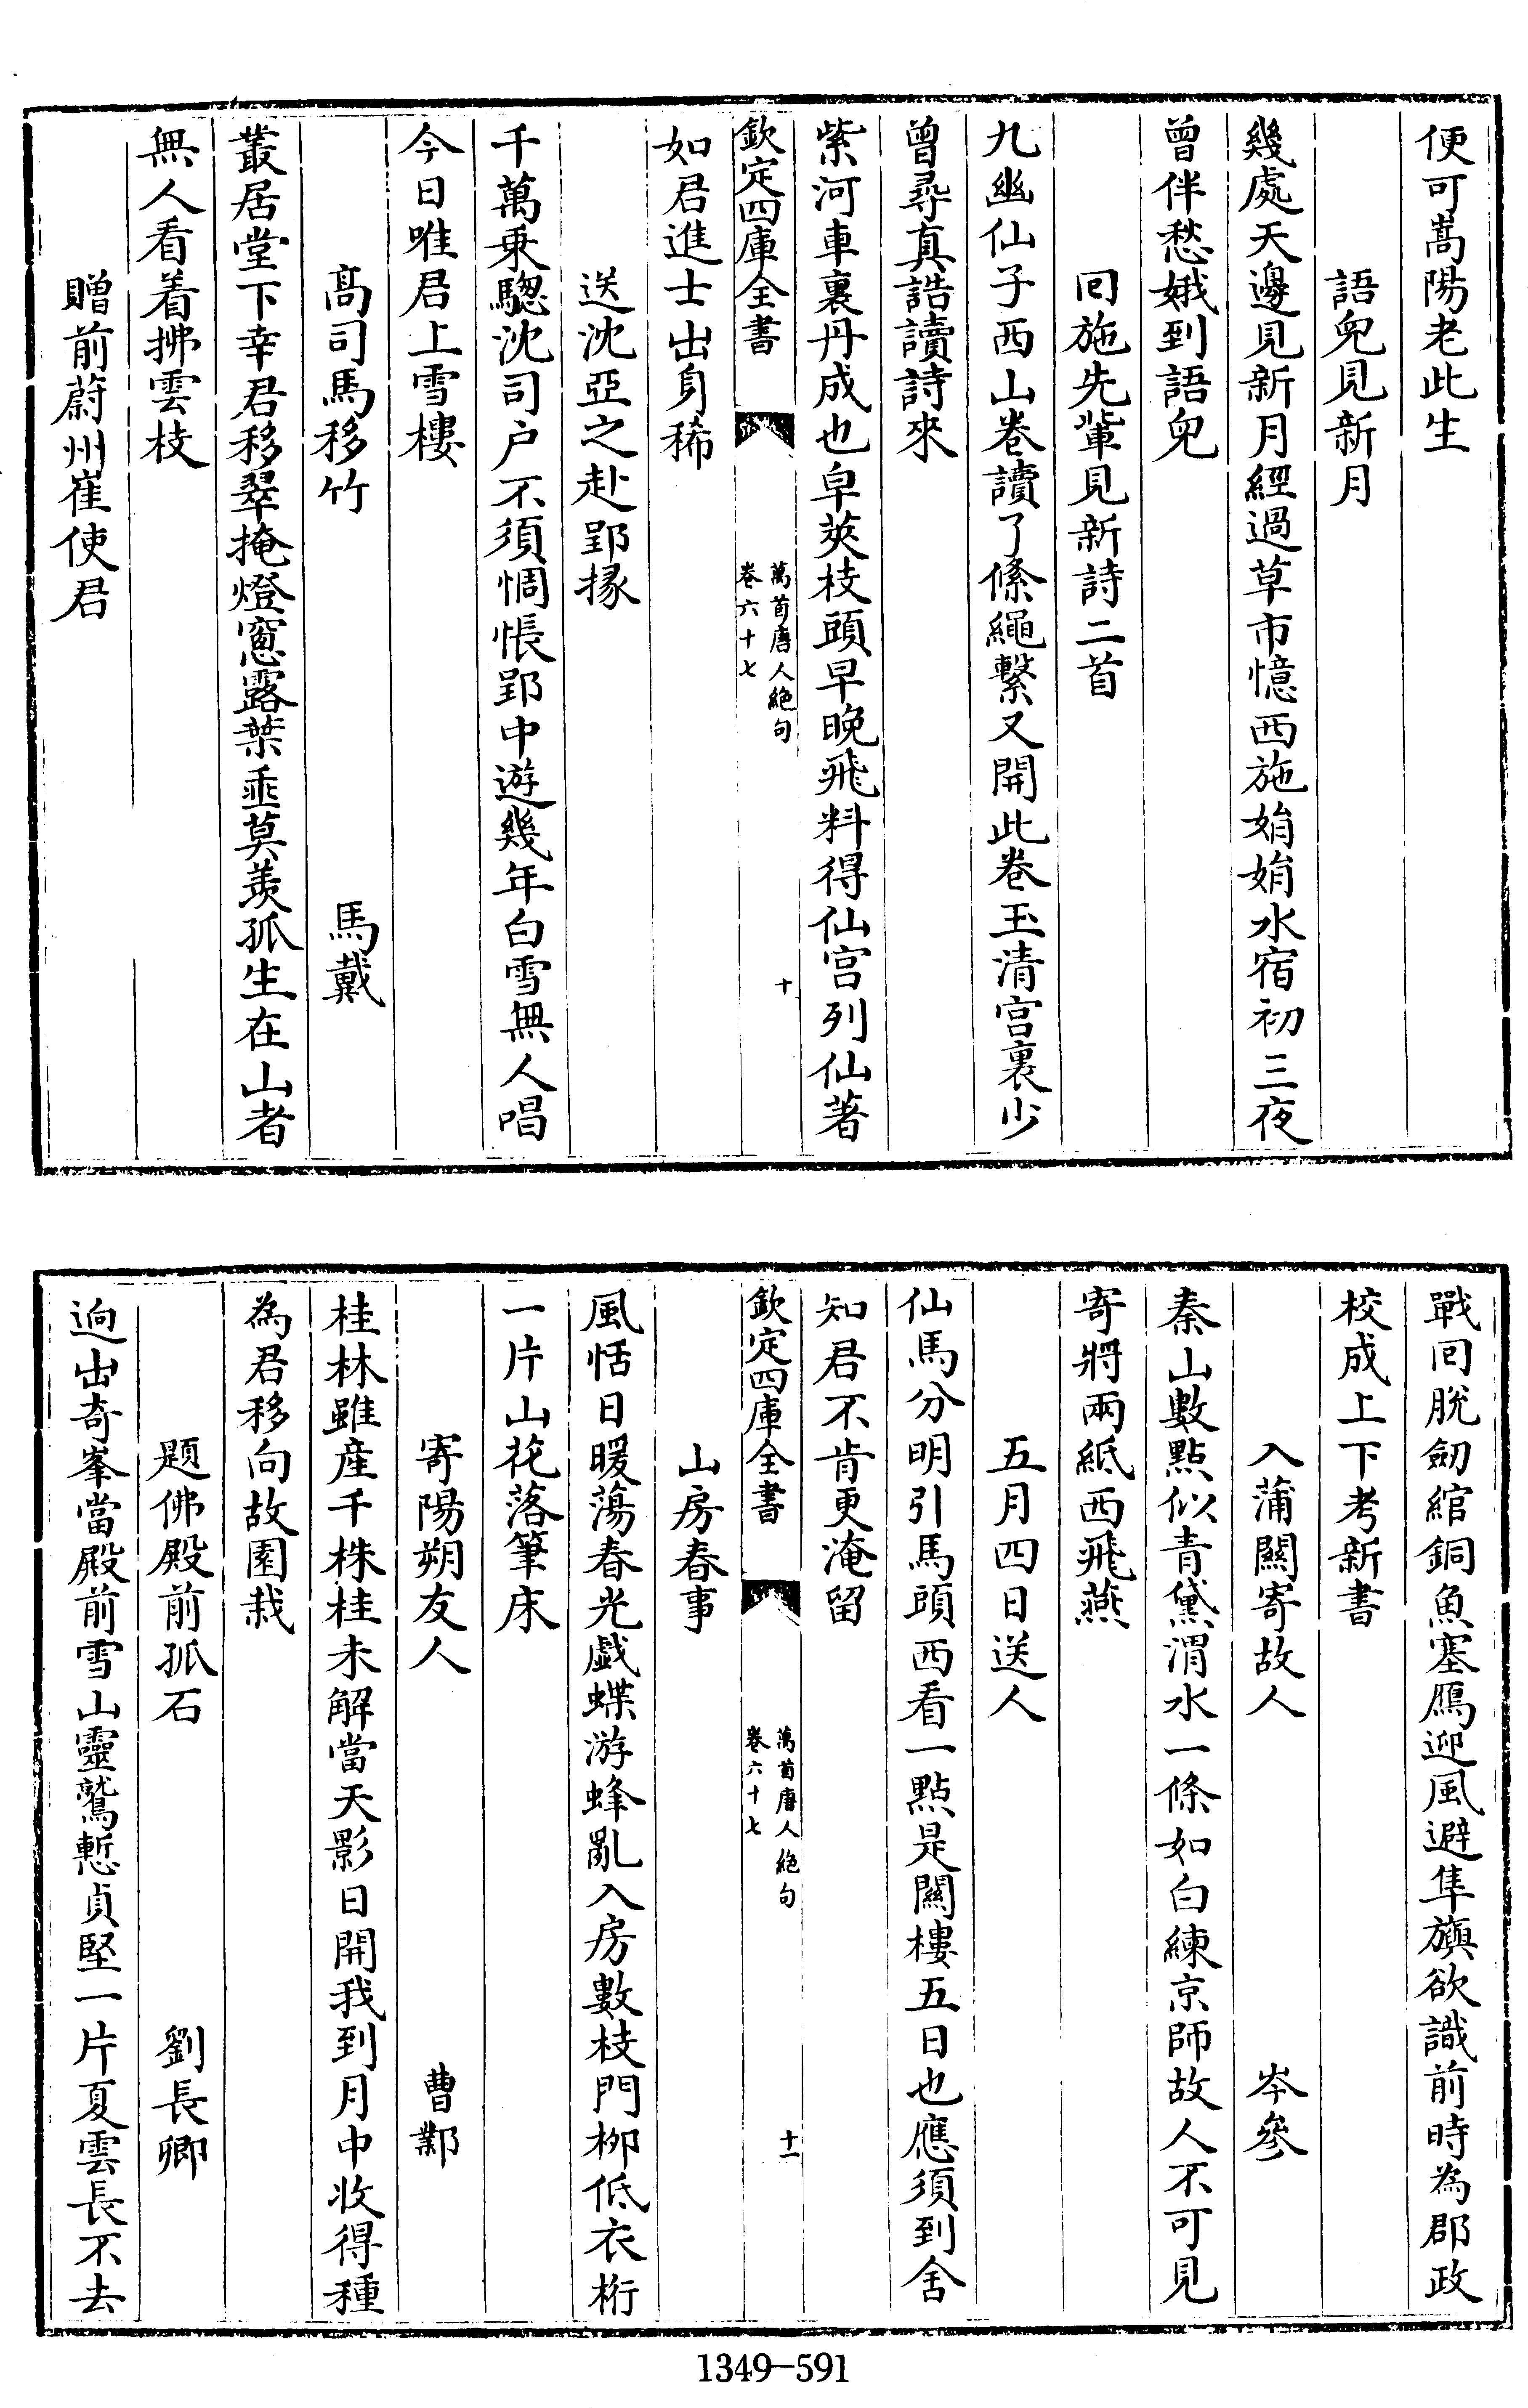 便可嵩陽老此生
語兒見新月
幾處天邊見新月經過草市憶西施娟娟水宿初三夜
曾伴愁娥到語兒
回施先輩見新詩二首
九幽仙子西山卷讀了絛繩繫又開此卷玉清宫裏少
曾尋真誥讀詩來
紫河車裏丹成也皁莢枝頭早晚飛料得仙宫列仙著
欽定四庫全書
萬首唐人絶句
卷六十七
十
如君進士出身稀
送沈亞之赴郢掾
千萬乗驄沈司户不須惆悵郢中遊幾年白雪無人唱
今日唯君上雪樓
髙司馬移竹 馬戴
叢居堂下幸君移翠掩燈窻露葉垂莫羨孤生在山者
無人看着拂雲枝
贈前蔚州崔使君
戰回脫劒綰銅魚塞鴈迎風避隼旟欲識前時為郡政
校成上下考新書
入蒲關寄故人 岑參
秦山數點似青黛渭水一條如白練京師故人不可見
寄將兩紙西飛燕
五月四日送人
仙馬分明引馬頭西看一點是關樓五日也應須到舍
知君不肯更淹留
欽定四庫全書
萬首唐人絶句
卷六十七
十一
山房春事
風恬日暖蕩春光戯蝶游蜂亂入房數枝門栁低衣桁
一片山花落筆床
寄陽朔友人 曹鄴
桂林雖産千株桂未解當天影日開我到月中收得種
為君移向故園栽
題佛殿前孤石 劉長卿
逈出竒峯當殿前雪山靈鷲慙貞堅一片夏雲長不去
1349-591